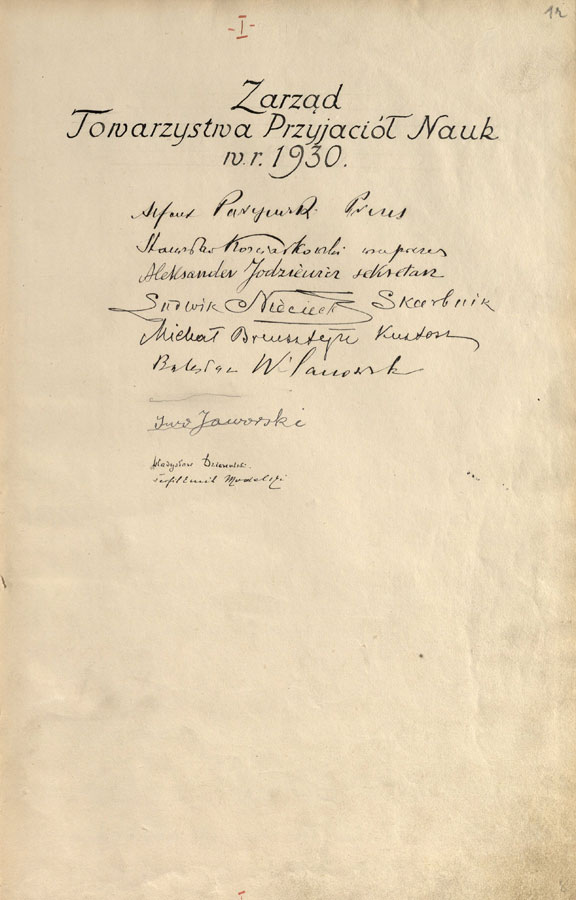 - I -
12
Zarząd
Towarzystwa Przyjaciół Nauk
w. r. 1930.
Alfons Parczewski Prezes
Stanisław Kościałkowski wiceprezes
Aleksander Jodziewicz sekretarz
Ludwik Niecieck Skarbnik
Michał Brensztejn Kustosz
Bolesław Wilanowsk
Iwo Jaworski
Władysław Dziewulski
Teofil Emil Modelski